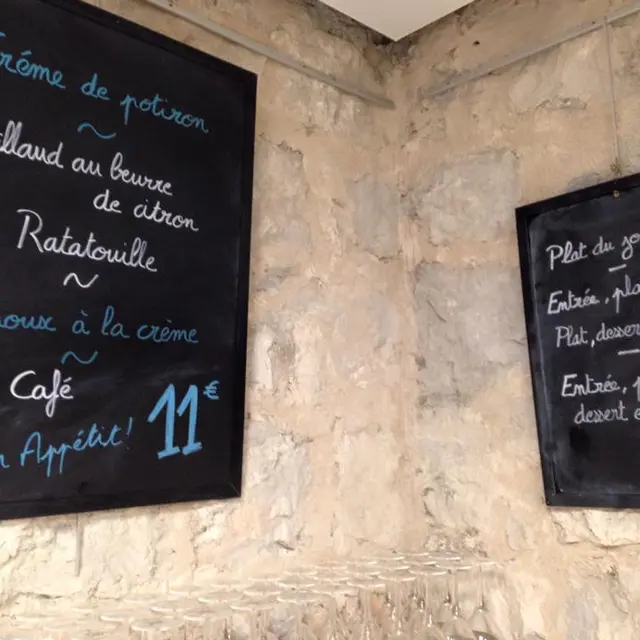 réme de potiron
~
illaud au beurre
de citron
Ratatouille
~
oux à la crème
~
Café
n Appétit!
11€
Plat du jo
Entrée, pla
Plat, dessert
Entrée, p
dessert c